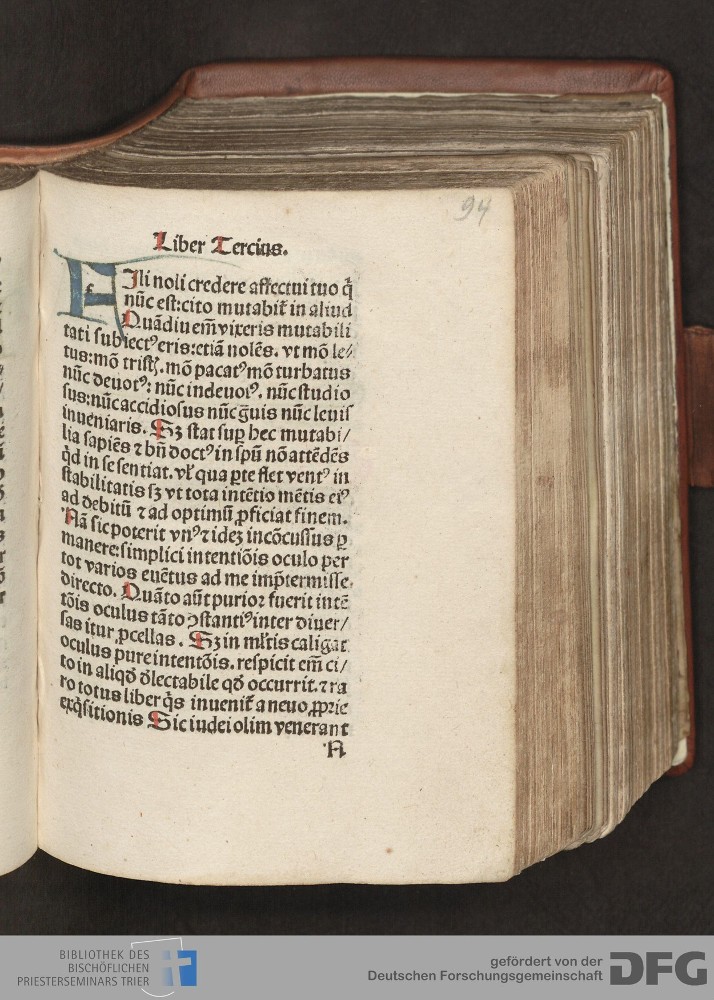 94
Liber Tercius.
FIli noli credere affectui tuo q̃
nũc est:cito mutabit̃ in aliud
Quãdiu em̃ vixeris mutabili
tati subiectꝰ eris:etiã nolẽs. vt mõ le/
tus:mõ tristꝭ. mõ pacatꝰ mõ turbatus
nũc deuotꝰ: nũc indeuotꝰ. nũc studio
sus:nũc accidiosus nũc g̃uis nũc leuis
inueniaris. Sꝫ stat sup̱ hec mutabi/
lia sapiẽs ⁊ bñ doctꝰ in sp̃u nõ attẽdẽs
q̇d in se sentiat. vl̕ qua ꝑte flet ventꝰ in
stabilitatis sꝫ vt tota intẽtio mẽtis eiꝰ
ad debitũ ⁊ ad optimũ ꝓficiat finem.
Nã sic poterit vnꝰ ⁊ ideꝫ incõcussus ꝑ
manere:simplici intentiõis oculo per
tot varios euẽtus ad me imp̃termisse
directo. Quãto aũt purioꝛ fuerit intẽ
tõis oculus tãto ꝯstantiꝰ inter diuer/
sas itur ꝓcellas. Sꝫ in ml̕tis caligat
oculus pure intentõis. respicit em̃ ci/
to in aliqđ đlectabile qđ occurrit. ⁊ ra
ro totus liber q̇s inuenit̃ a neuo ꝓprie
exq̇sitionis Sic iudei olim venerant
A
BIBLIOTHEK DES
BISCHÖFLICHEN
PRIESTERSEMINARS TRIER
gefördert von der
Deutschen Forschungsgemeinschaft
DFG